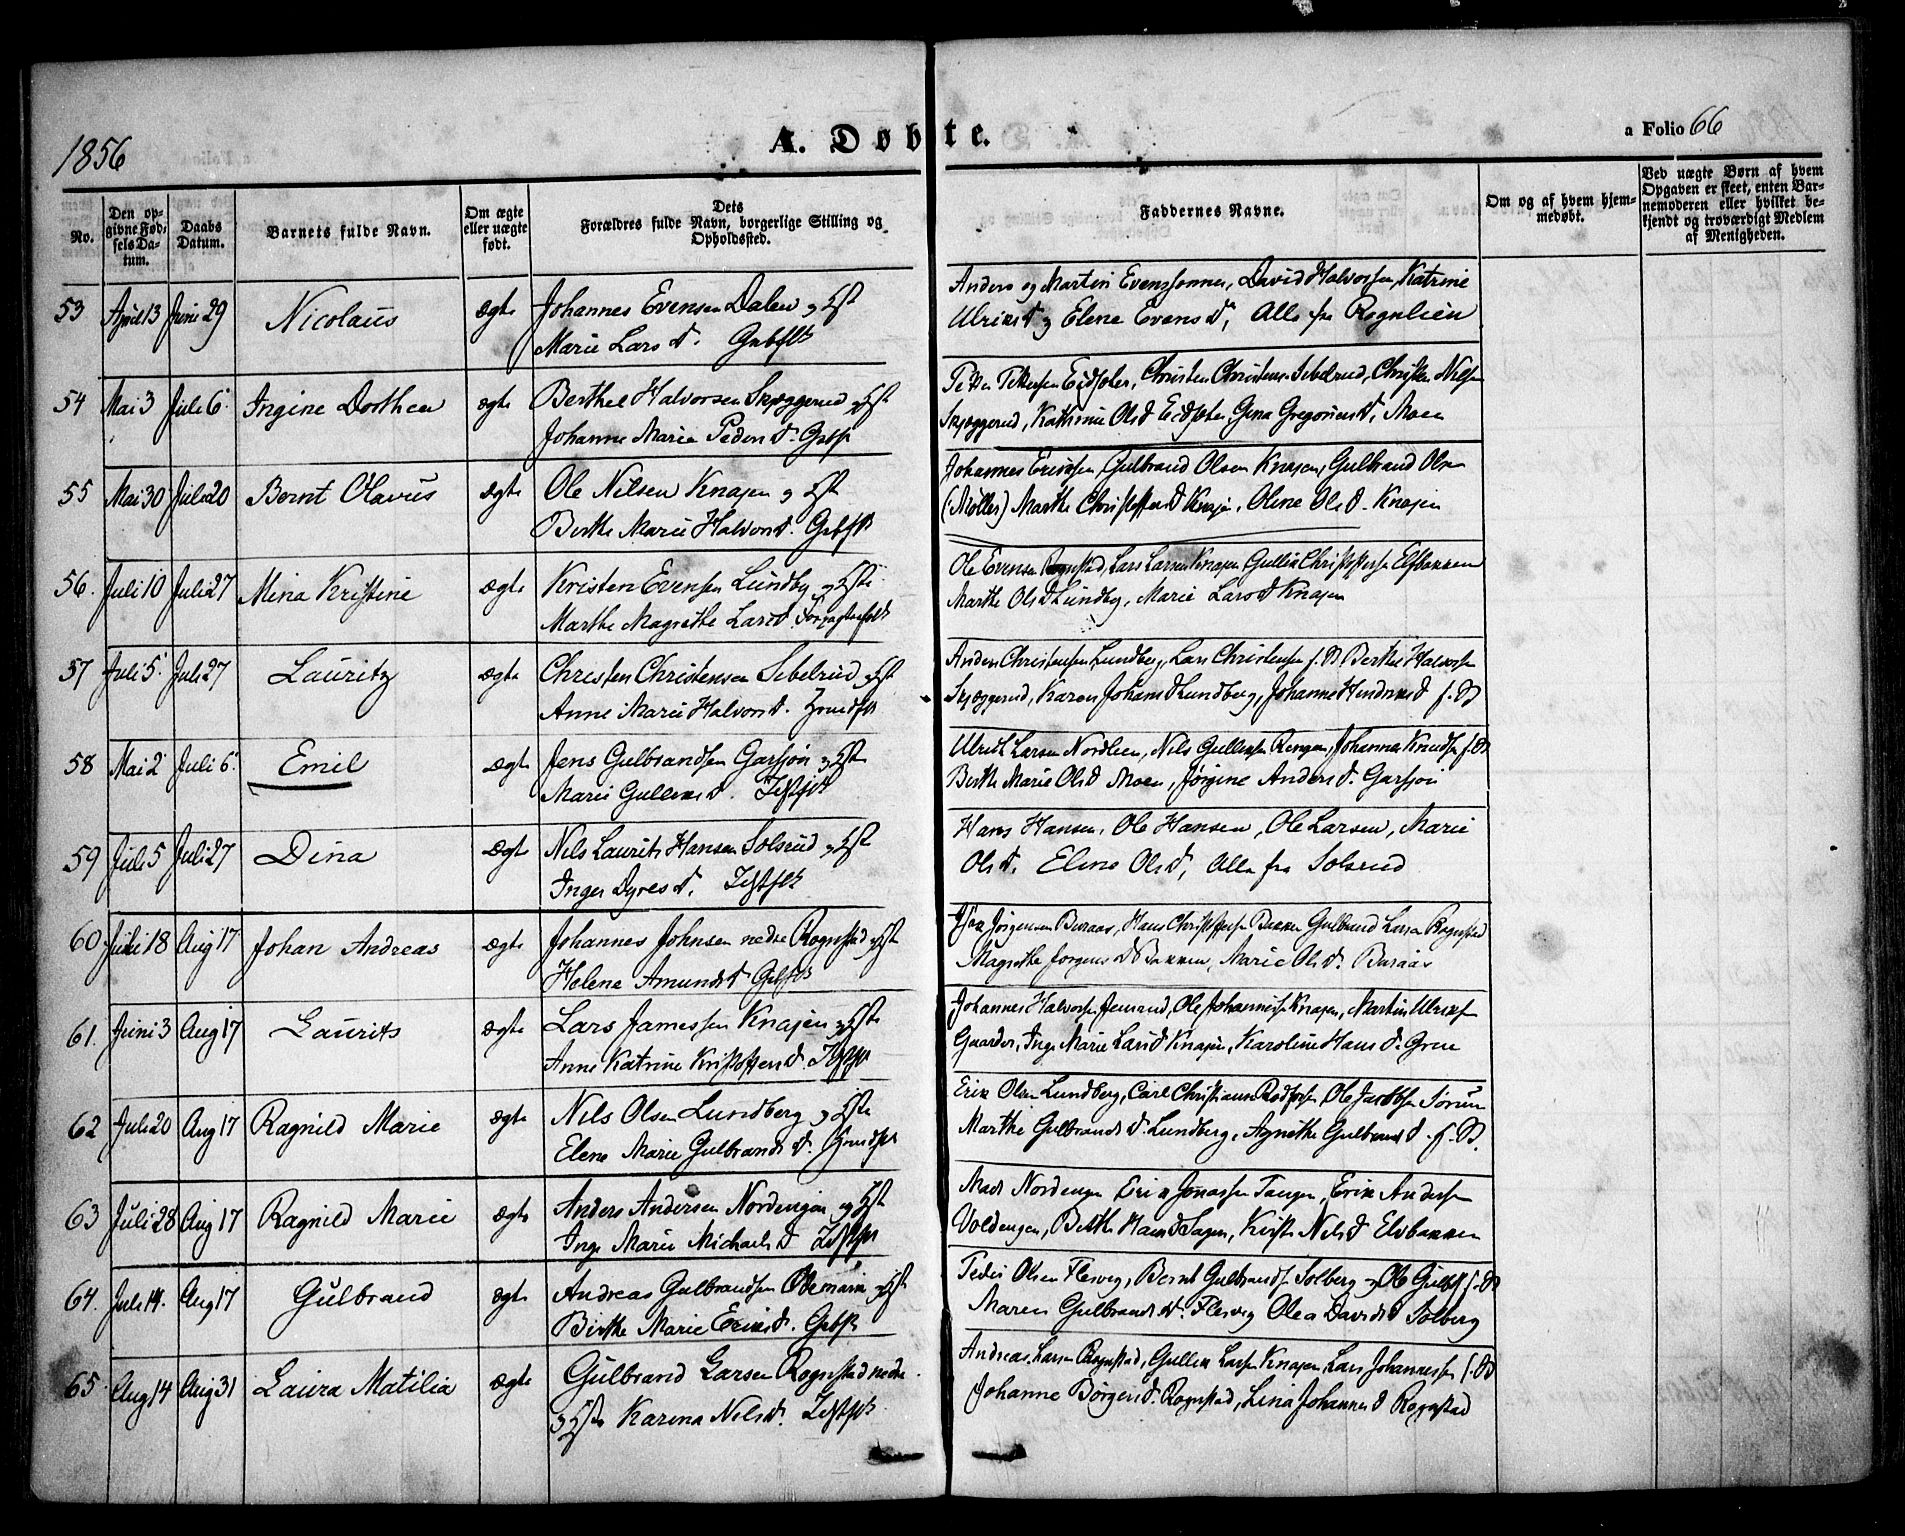 1856
A. Døbte.
a Folio 66
No.
Den op-
givne Fød-
sels Da-
tum.
Daabs
Datum.
Barnets fulde Navn.
Om ægte
eller uægte
født.
Dets
Forældres fulde Navn, borgerlige Stilling og
Opholdssted.
Faddernes Navne.
Om og af hvem hjem-
medøbt.
Ved uægte Børn af hvem
Opgaven er skeet, enten Bar-
nemoderen eller hvilket be-
kjendt og troværdigt Medlem
af Menigheden.
53 April 13 Juni 29 Nicolaus ægte Johannes Evensen Dalen og Hst
Marie Lars D. Grbflk
Anders og Martin Evenssønner, David Halvorsen, Katrine
Ulriks D og Elene Evens D, Alle fra Rognlien
54 Mai 3 Juli 6 Ingine Dorthea ægte Berthel Halvorsen Skjæggerud og Hst
Johanne Marie Peders D. Grbf
Petter Pettersen Eidfoler, Christen Christens. Sebelrud, Christen Nilsen
Skjæggerud, Kathrine Ols D Gina Gregoriens D, Moen
55 Mai 30 Juli 20 Bernt Olavus ægte Ole Nilsen Knajen og Hst
Berthe Marie Halvors D. Grbflk
Johannes Eriksen, Gulbrand Olsen Knajen, Gulbrand Olsen
(Møller) Marthe Christoffers D Knajen, Oline Ols D. Knajen
56. Juli 10 Juli 27 Mina Kristine ægte Kristen Evensen Lundby og Hste
Marthe Magrethe Lars D. Forpagterfolk
Ole Evensen Rognstad, Lars Larsen Knajen Gullik Christoffersen Elfbakken
Marthe Ols D Lundby, Marie Lars D Knajen
57 Juli 5 Juli 27 Lauritz ægte Christen Christensen Sebelrud og Hst
Anne Marie Halvors D. Grundflk
Anders Christensen Lundberg, Lars Christensen f. St Berthel Halvorsen
Skjæggerud, Karen Johans D Lundberg, Johanne Hendriks D f. St
58 Mai 2 Juli 6 Emil ægte Jens Gulbrandsen Garsjøn og Hste
Marie Gulliks D. Istflk
Ulrich Larsen Nordlien, Nils Gulliksen Rengen, Johannes Knudsen f. St
Berthe Marie Ols D Moen, Jørgine Anders D. Garsjøn
59 Juli 5 Juli 27 Dina ægte Nils Laurits Hansen Solsrud og Hst
Inger Dyres D. Istflk
Hans Hansen, Ole Hansen, Ole Larsen, Marie
Ols D. Eline Ols D, Alle fra Solsrud
60 Juli 18 Aug 17 Johan Andreas ægte Johannes Johnsen nedre Rognstad og Hst
Helene Amunds D Grbflk
Jørgensen Buraas, Hans Christoffersen Bakken Gulbrand Larsen Rognstad
Magrethe Jørgens D Bakken, Marie Ols D. Buraas
61. Juni 3 Aug 17 Laurits ægte Lars Jamessen Knajen og Hste
Anne Katrine Kristoffers D.
Johannes Halvorsen Jensrud, Ole Johannes. Knajen, Martin Ulriksen
Gaarder, Inge Marie Lars D Knajen, Karoline Hans D. Gren
62 Juli 20 Aug 17 Ragnild Marie ægte Nils Olsen Lundberg og Hste
Elene Marie Gulbrands D. Grundflk
Erik Olsen Lundberg, Carl Christiansen Rodfossen, Ole Jacobsen Sørum
Marthe Gulbrands D. Lundberg, Agnethe Gulbrands D. f. St
63 Juli 28 Aug 17 Ragnild Marie ægte Anders Andersen Nordengen og Hst
Inge Marie Michaels D
Mads Nordengen Erik Jonassen Tangen, Erik Andersen
Voldengen, Berthe Hans D Sagen, Kirsti Nils D Elvbakken
64. Juli 14. Aug 17 Gulbrand ægte Andreas Gulbrandsen og Hst
Birthe Marie Eriks D. Grbflk
Peder Olsen Flesvig, Bernt Gulbrands. Solberg og Ole Gulbs. f. St
Maren Gulbrands D. Flesvig Olea Davids D Solberg
65 Aug 14 Aug 31 Laura Matilia ægte Gulbrand Larsen Rognstad nedre
og Hste Karina Nils D. Istflk
Andreas Larsen Rognstad, Gullik Larsen Knajen, Lars Johannessen f. St
Johanne Børgers D. Rognstad, Lina Johannes D Rognstad